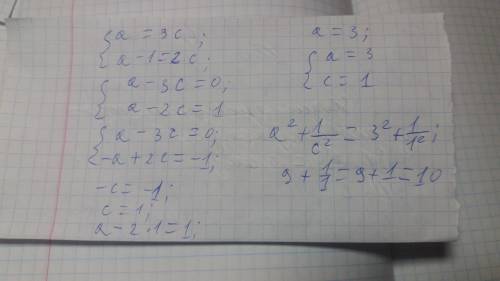 {a = 3c;
a - 1 = 2c;
{a - 3c = 0;
a - 2c = 1
{a - 3c = 0;
-a + 2c = -1;
-c = -1;
c = 1;
a - 2 · 1 = 1;
a = 3;
{a = 3
c = 1
a² + 1/c² = 3² + 1/1²;
9 + 1/1 = 9 + 1 = 10